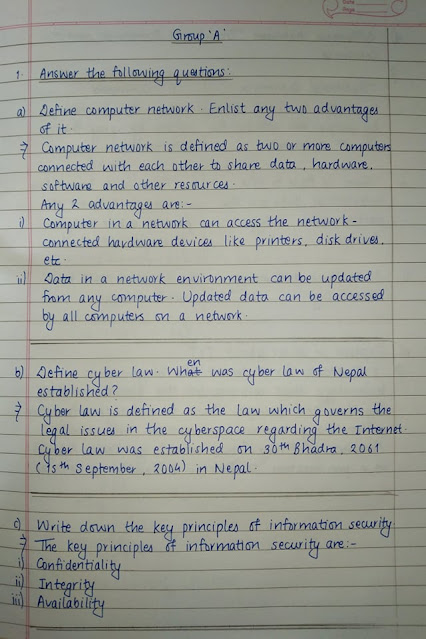 Group 'A'
1. Answer the following questions:
a) Define computer network. Enlist any two advantages
of it.
⇒ Computer network is defined as two or more computers
connected with each other to share data, hardware,
software and other resources.
Any 2 advantages are:-
i) Computer in a network can access the network-
connected hardware devices like printers, disk drives,
etc.
ii) Data in a network environment can be updated
from any computer. Updated data can be accessed
by all computers on a network.
b) Define cyber law. When was cyber law of Nepal
established?
⇒ Cyber law is defined as the law which governs the
legal issues in the cyberspace regarding the Internet.
Cyber law was established on 30th Bhadra, 2061
(15th September, 2004) in Nepal.
c) Write down the key principles of information security
⇒ The key principles of information security are:-
i) Confidentiality
ii) Integrity
iii) Availability